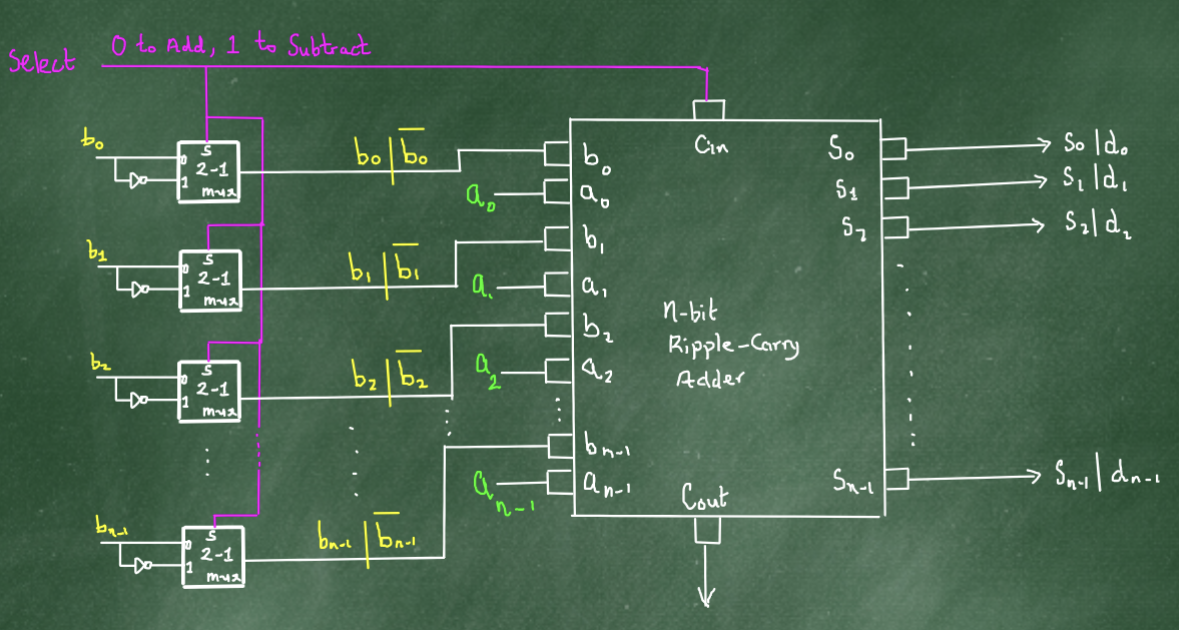 Select 0 to Add, 1 to Subtract
b₀
S
0 2-1
1 mux
b₀ | b̅₀
a₀
b₁
S
0 2-1
1 mux
b₁ | b̅₁
a₁
b₂
S
0 2-1
1 mux
b₂ | b̅₂
a₂
bₙ₋₁
S
0 2-1
1 mux
bₙ₋₁ | b̅ₙ₋₁
aₙ₋₁
Cin
b₀
a₀
b₁
a₁
b₂
a₂
bₙ₋₁
aₙ₋₁
n-bit
Ripple-Carry
Adder
Cout
S₀
S₁
S₂
Sₙ₋₁
S₀ | d₀
S₁ | d₁
S₂ | d₂
Sₙ₋₁ | dₙ₋₁